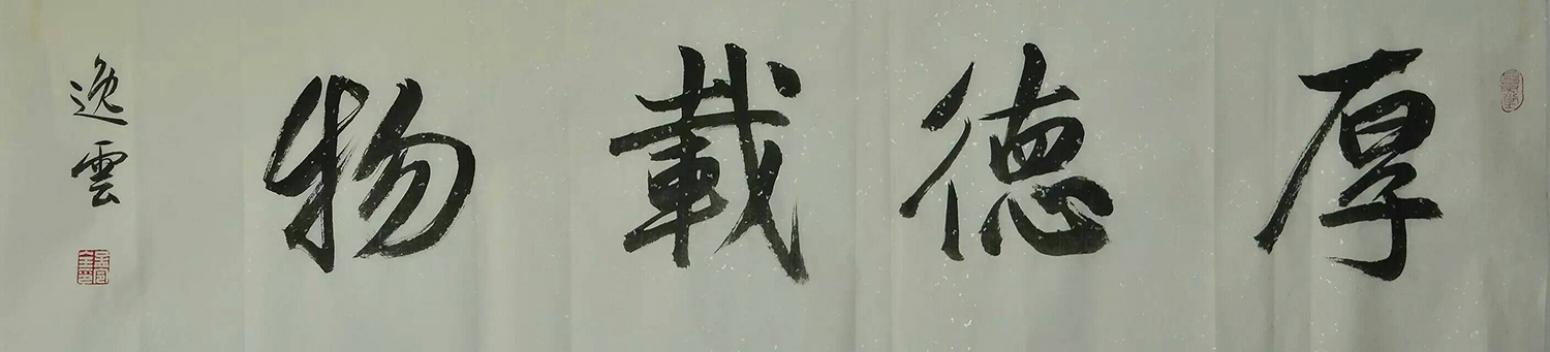 厚德載物
逸雲